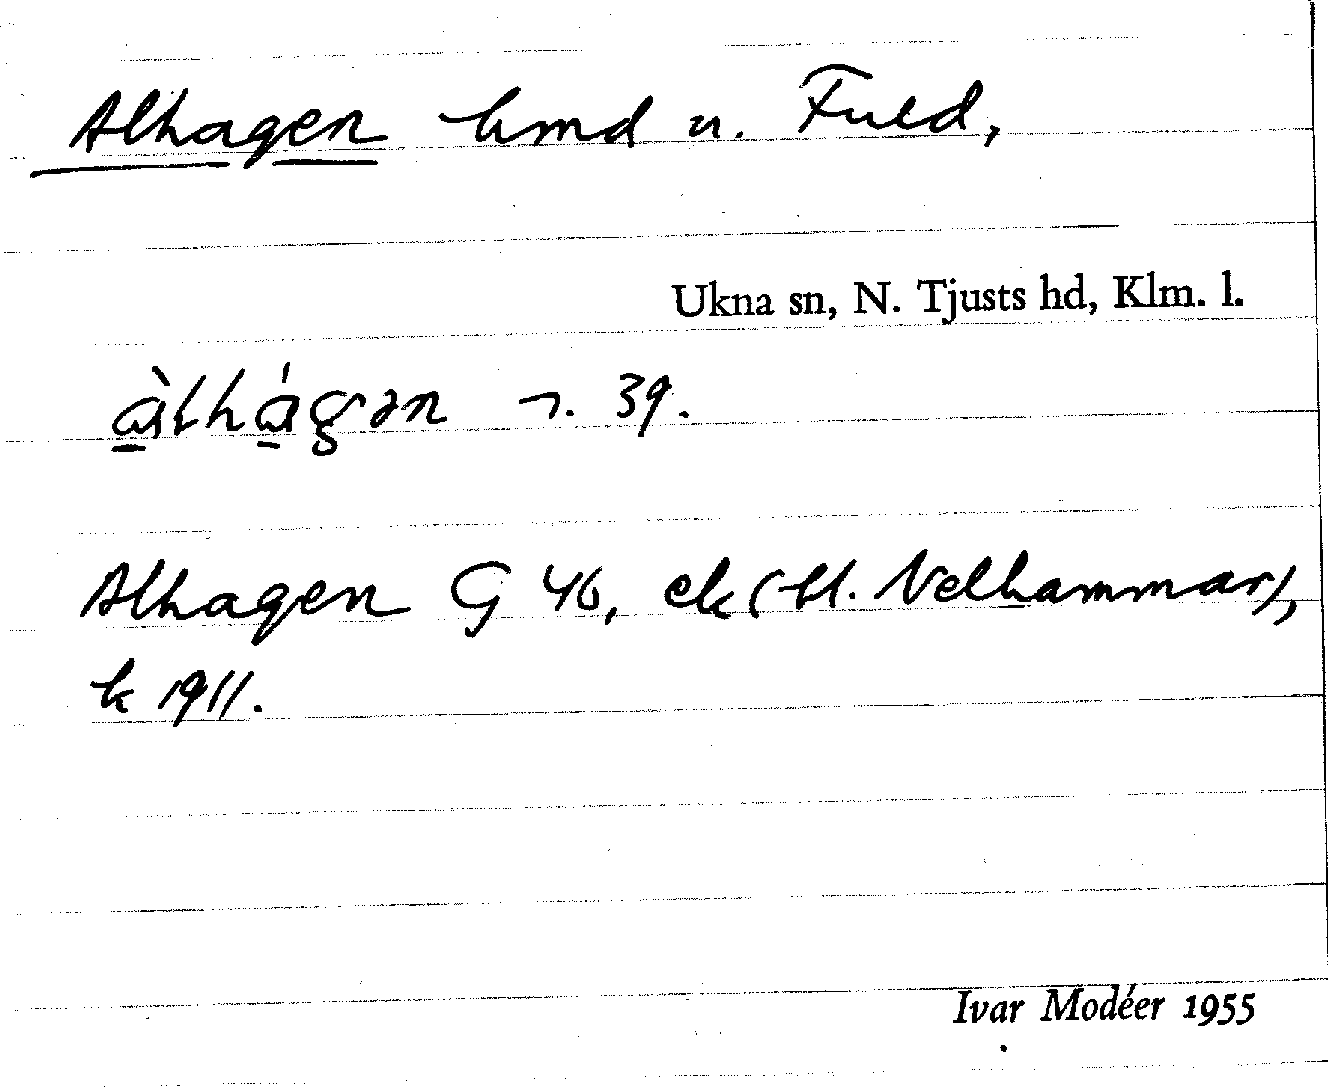 Alhagen lmd u. Fued,
Ukna sn, N. Tjusts hd, Klm. l.
àlhágən 39.
Alhagen G 46, ek (St. Nelhammar),
k 1911.
Ivar Modéer 1955